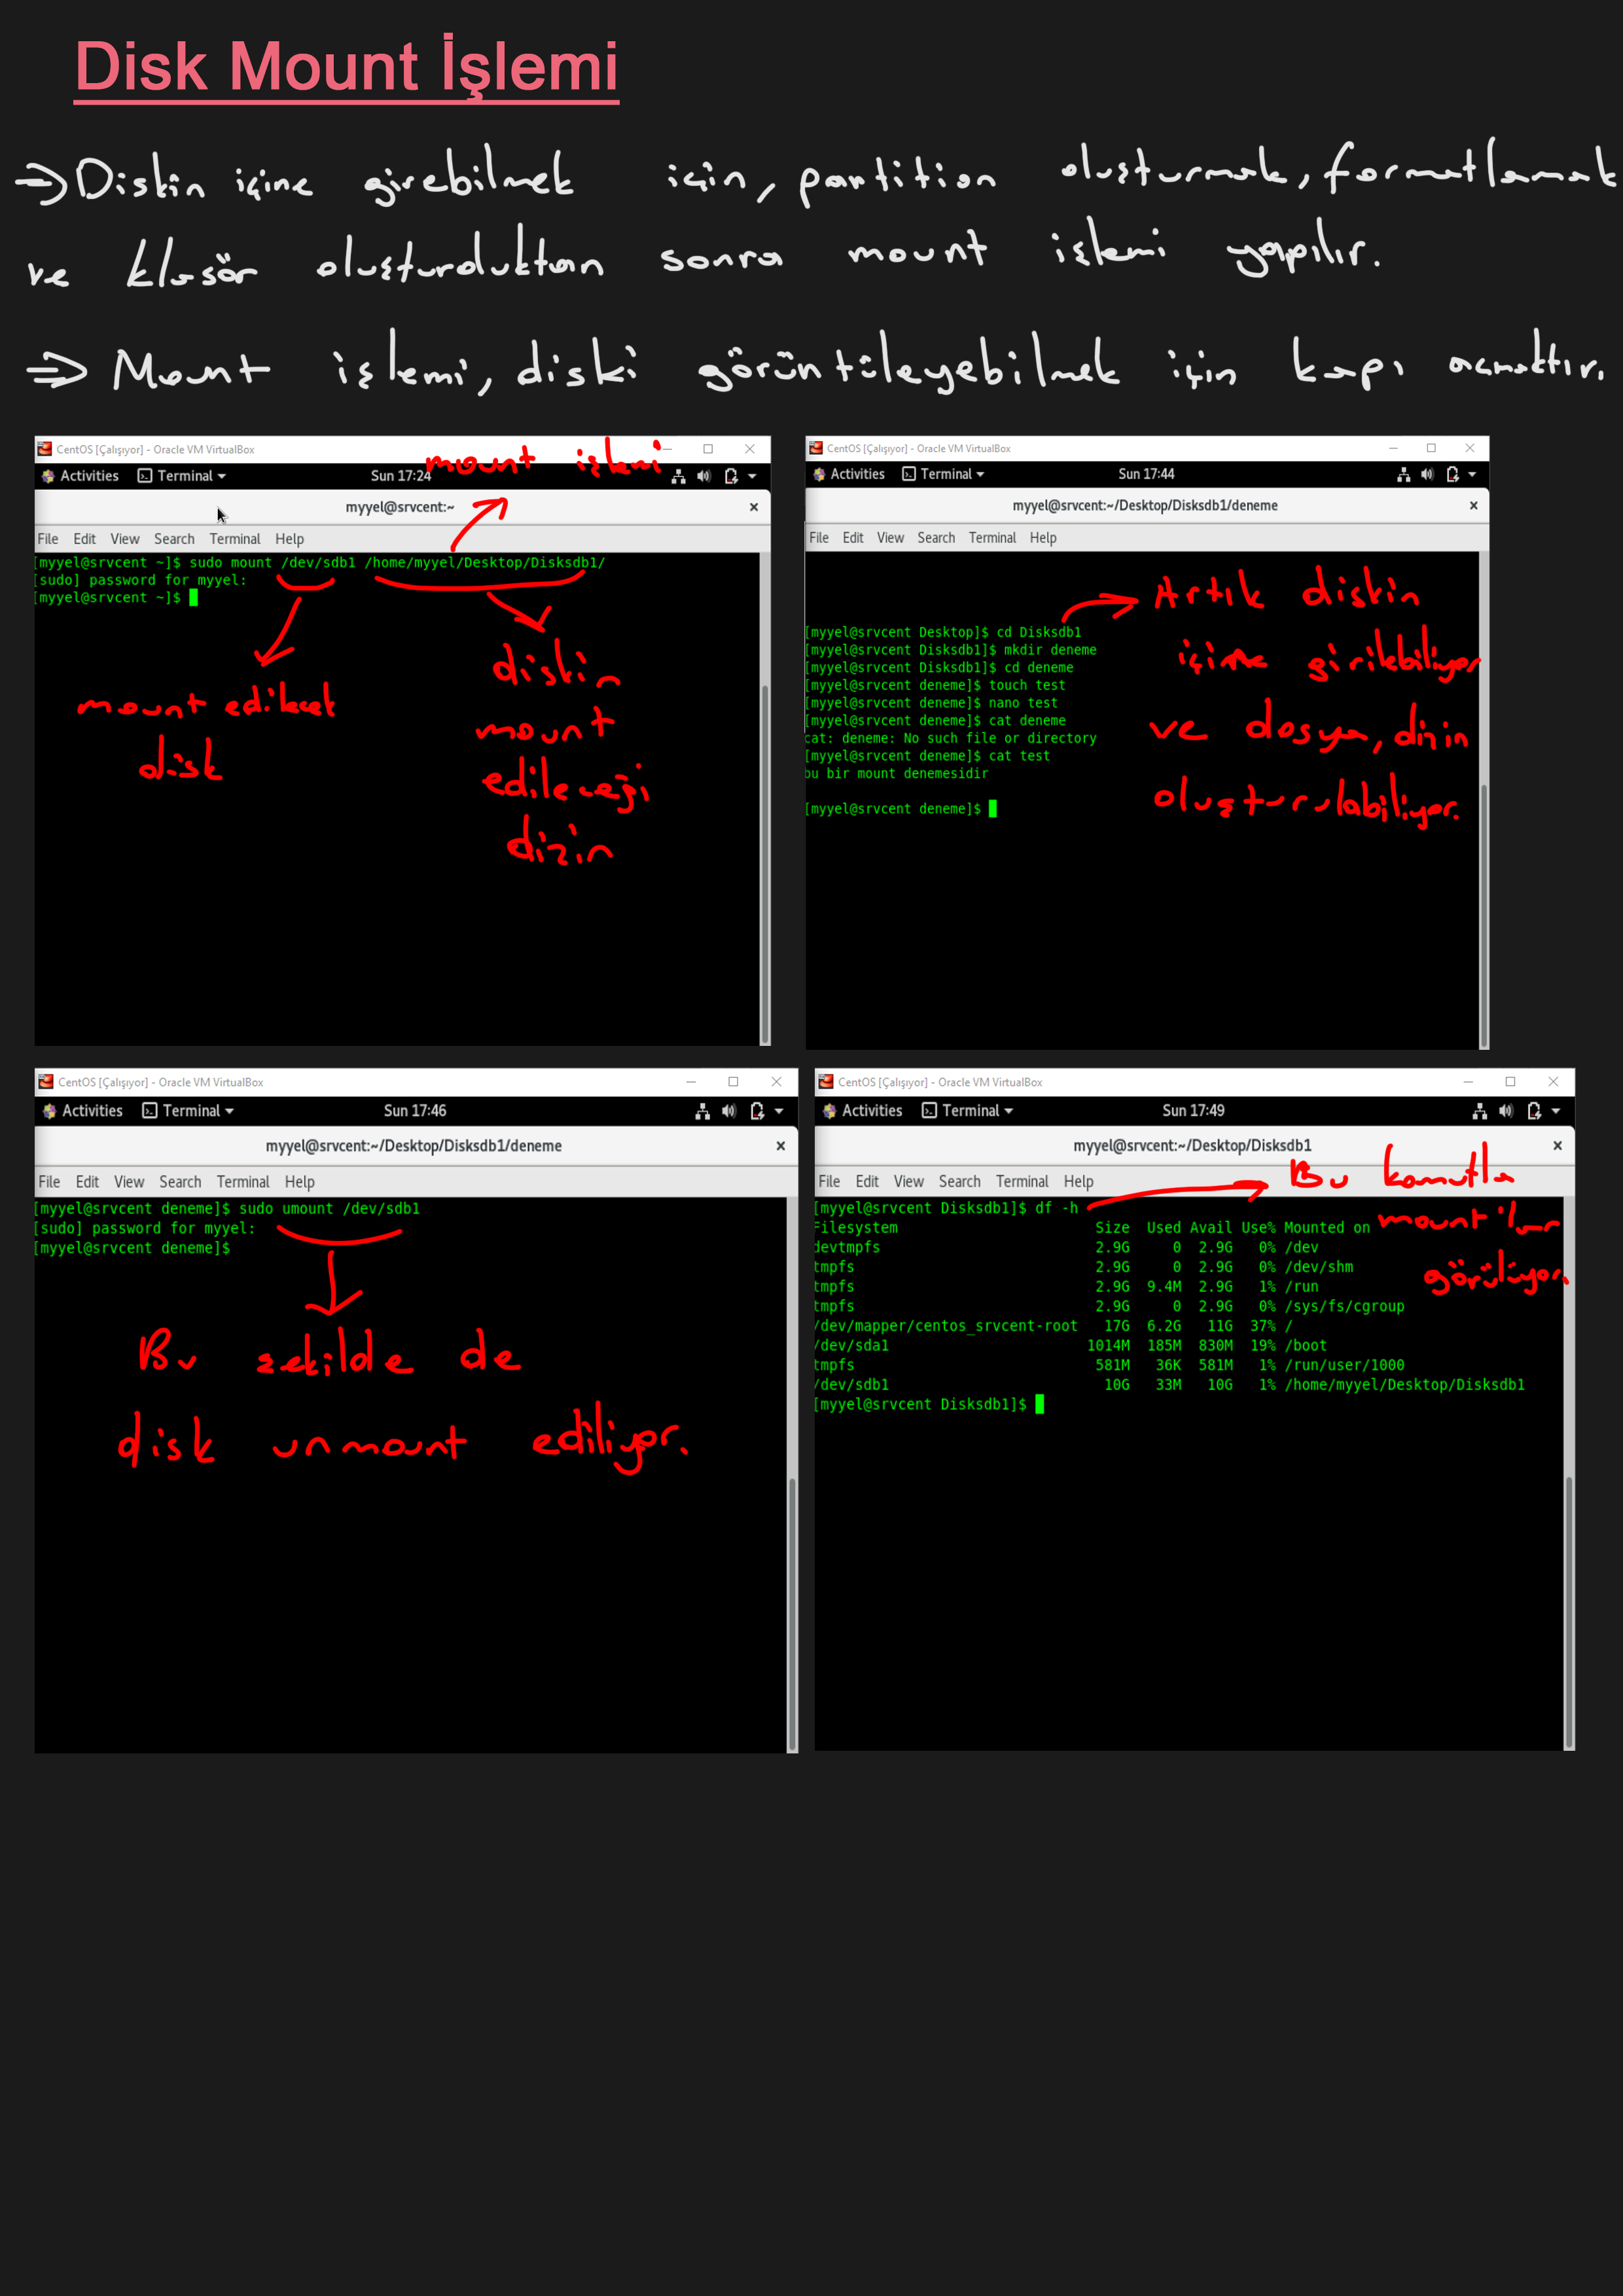 Disk Mount İşlemi
⇒ Diskin içine girebilmek için, partition oluşturmak, formatlamak
ve klasör oluşturduktan sonra mount işlemi yapılır.
⇒ Mount işlemi, diski görüntüleyebilmek için kapı açmaktır.
CentOS [Çalışıyor] - Oracle VM VirtualBox
mount işlemi
Activities Terminal Sun 17:24
myyel@srvcent:~
File Edit View Search Terminal Help
[myyel@srvcent ~]$ sudo mount /dev/sdb1 /home/myyel/Desktop/Disksdb1/
[sudo] password for myyel:
[myyel@srvcent ~]$
mount edilecek
disk
diskin
mount
edileceği
dizin
CentOS [Çalışıyor] - Oracle VM VirtualBox
Activities Terminal Sun 17:44
myyel@srvcent:~/Desktop/Disksdb1/deneme
File Edit View Search Terminal Help
[myyel@srvcent Desktop]$ cd Disksdb1
[myyel@srvcent Disksdb1]$ mkdir deneme
[myyel@srvcent Disksdb1]$ cd deneme
[myyel@srvcent deneme]$ touch test
[myyel@srvcent deneme]$ nano test
[myyel@srvcent deneme]$ cat deneme
cat: deneme: No such file or directory
[myyel@srvcent deneme]$ cat test
bu bir mount denemesidir
[myyel@srvcent deneme]$
Artık diskin
içine girilebiliyor
ve dosya, dizin
oluşturulabiliyor.
CentOS [Çalışıyor] - Oracle VM VirtualBox
Activities Terminal Sun 17:46
myyel@srvcent:~/Desktop/Disksdb1/deneme
File Edit View Search Terminal Help
[myyel@srvcent deneme]$ sudo umount /dev/sdb1
[sudo] password for myyel:
[myyel@srvcent deneme]$
Bu şekilde de
disk unmount ediliyor.
CentOS [Çalışıyor] - Oracle VM VirtualBox
Activities Terminal Sun 17:49
myyel@srvcent:~/Desktop/Disksdb1
File Edit View Search Terminal Help
Bu komutla
mount'lar
görülüyor.
[myyel@srvcent Disksdb1]$ df -h
Filesystem Size Used Avail Use% Mounted on
devtmpfs 2.9G 0 2.9G 0% /dev
tmpfs 2.9G 0 2.9G 0% /dev/shm
tmpfs 2.9G 9.4M 2.9G 1% /run
tmpfs 2.9G 0 2.9G 0% /sys/fs/cgroup
/dev/mapper/centos_srvcent-root 17G 6.2G 11G 37% /
/dev/sda1 1014M 185M 830M 19% /boot
tmpfs 581M 36K 581M 1% /run/user/1000
/dev/sdb1 10G 33M 10G 1% /home/myyel/Desktop/Disksdb1
[myyel@srvcent Disksdb1]$